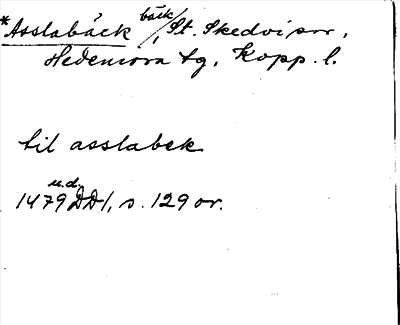 *Asslabäck bäck/, St. Skedvi sn,
Hedemora tg, Kopp. l.
til asslabek
u.d.
1479 DD1, s. 129 or.